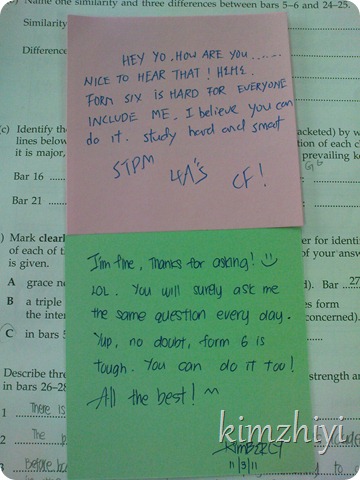 b) Name one similarity and three differences between bars 5–6 and 24–25.
Similarity
Difference
HEY YO. HOW ARE YOU ......
NICE TO HEAR THAT! HEHE.
FORM SIX IS HARD FOR EVERYONE
INCLUDE ME. I believe you can
do it. Study hard and smart
STPM 4A's CF!
(c) Identify the
lines below
it is major,
Bar 16
Bar 21
acketed) by w
tion of each cl
prevailing k
) Mark clearl
of each of t
is given.
A grace no
B a triple
the inter
C in bars 5
er for identi
of your answ
Bar 27
es form
concerned).
I'm fine, thanks for asking!
LOL. You will surely ask me
the same question every day.
Yup, no doubt, form 6 is
tough. You can do it too!
All the best! ^^
KIMBERLY
11/3/11
Describe thre
in bars 26–28
strength an
1 There is
2 The
3 Before
kimzhiyi